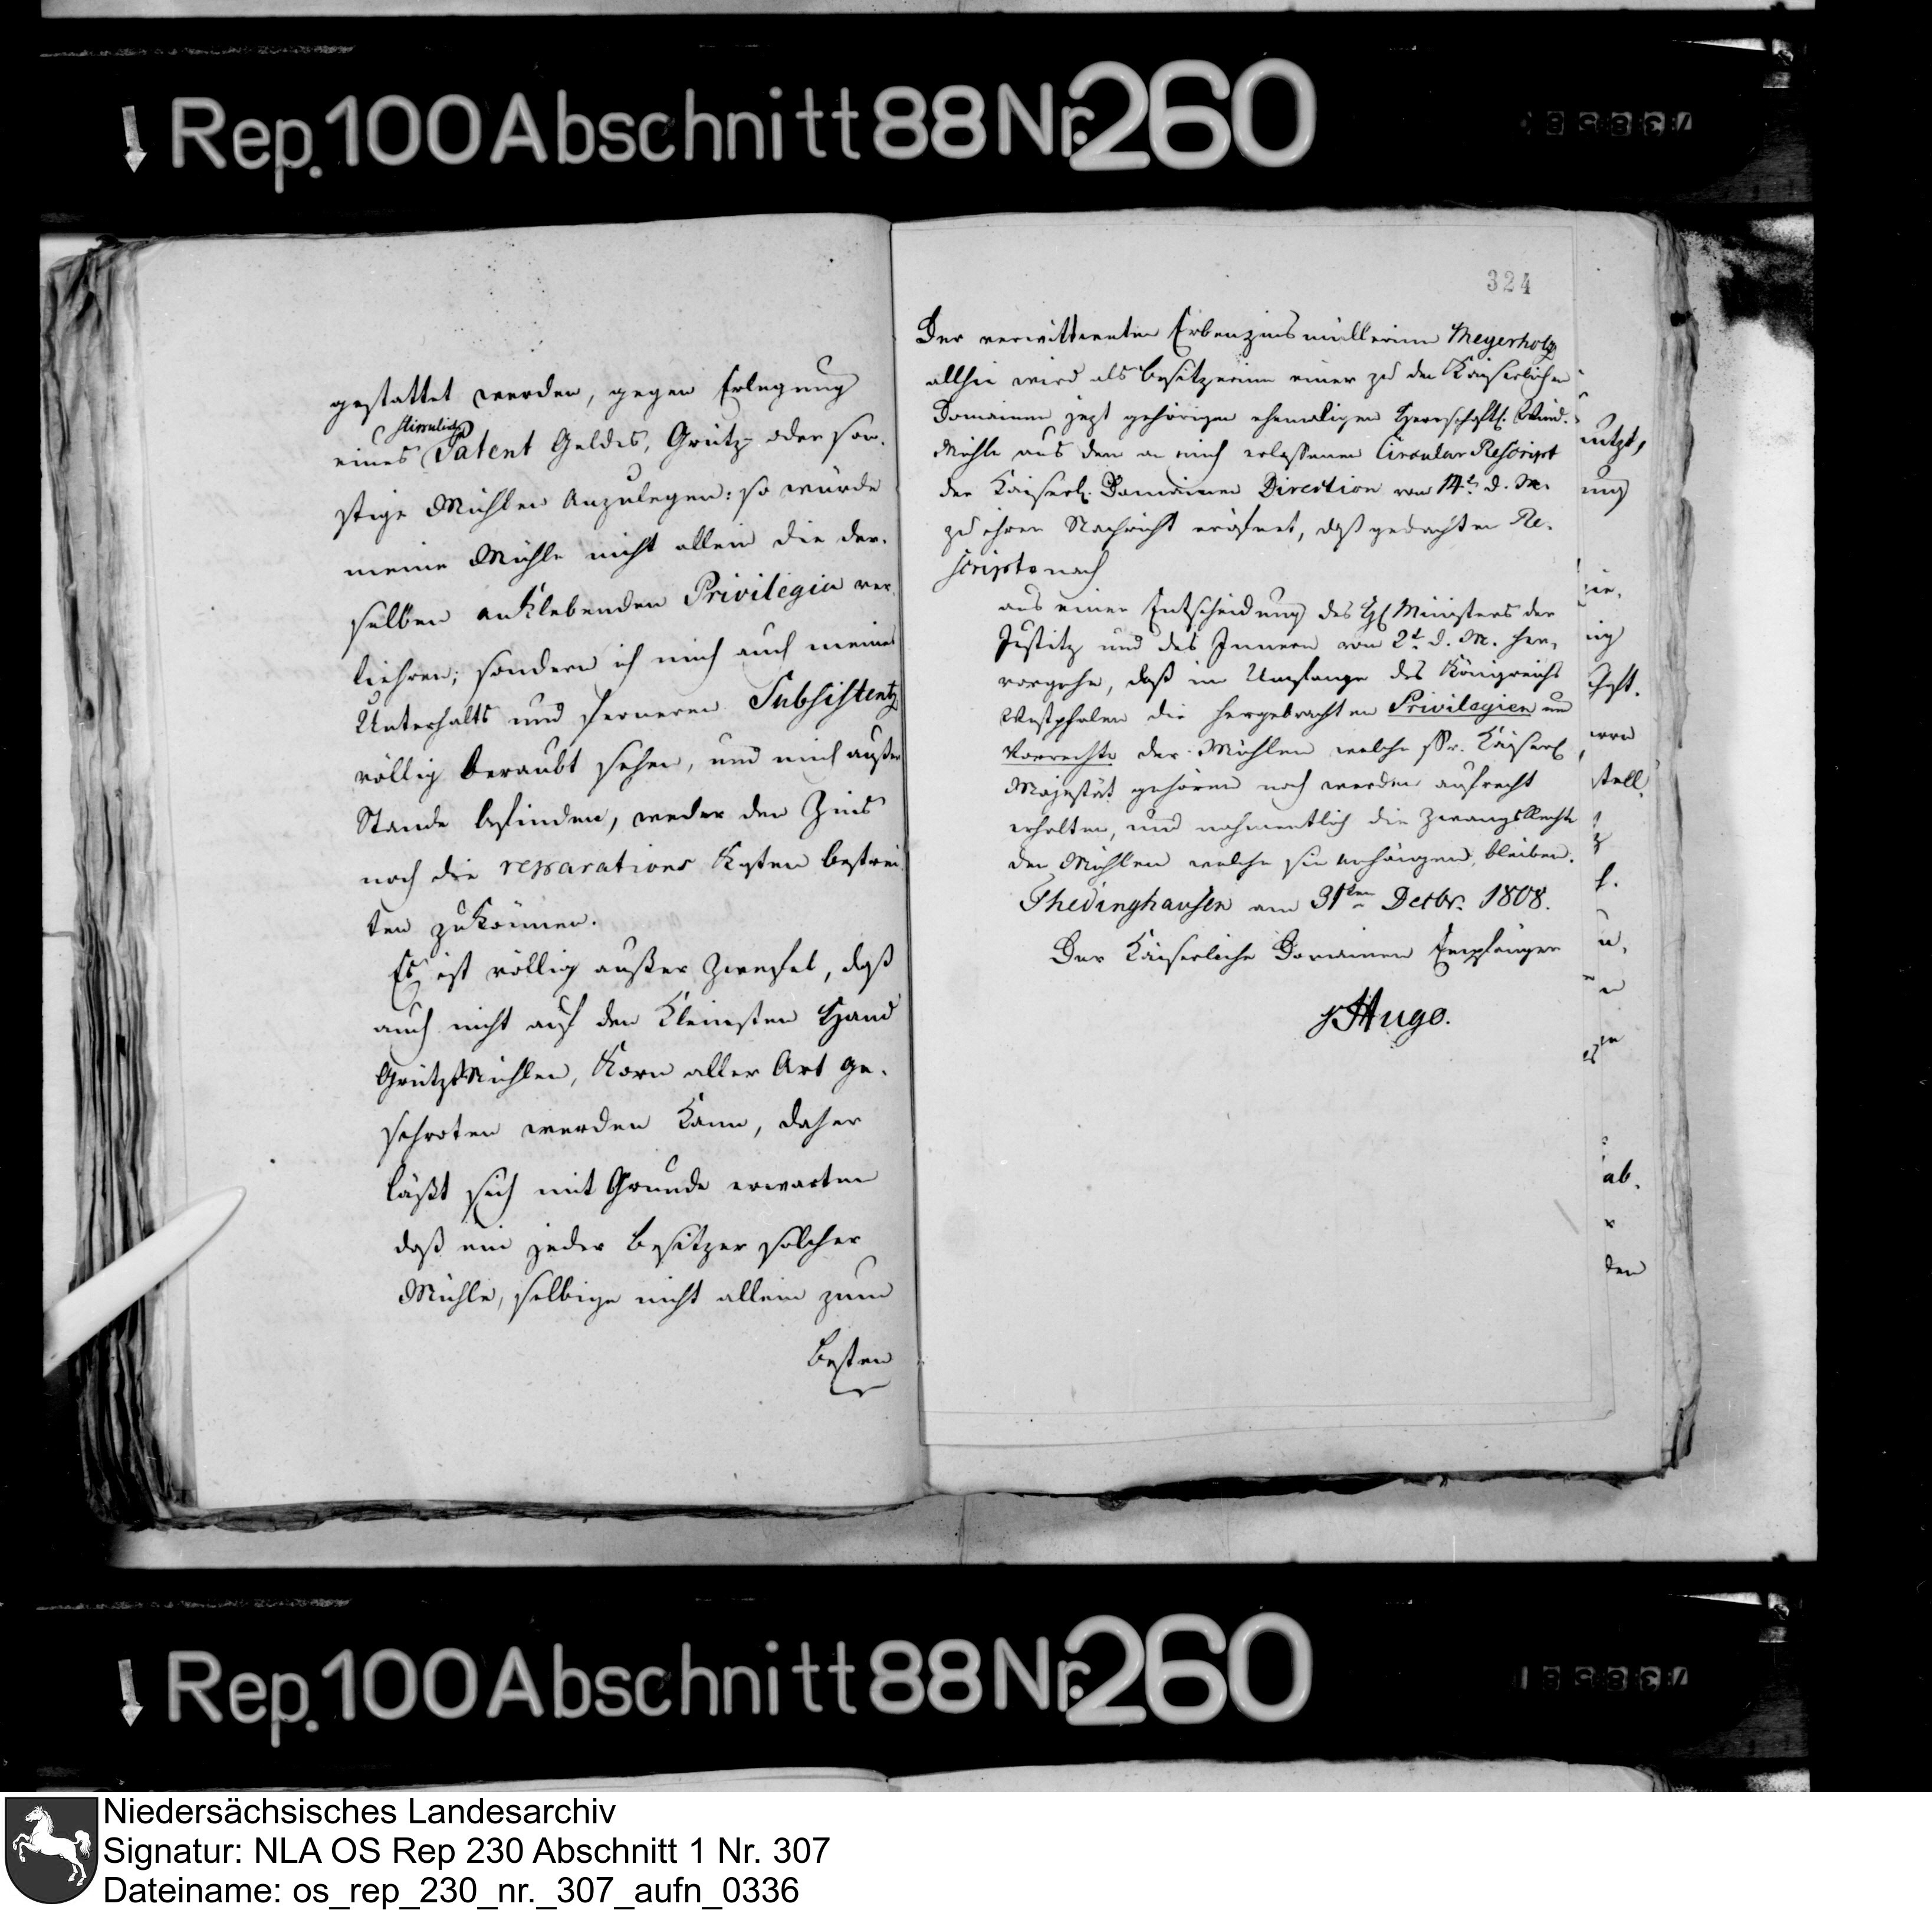 Rep. 100 Abschnitt 88 Nr. 260
gestattet werden, gegen Erlegung
eines Patent Geldes, Grütz- oder son-
stige Mühlen anzulegen: so würde
meine Mühle nicht allein die der-
selben anklebenden Privilegia ver
liehren; sondern ich mich auch meines
Unterhalts und ferneren Subsistentz
völlig beraubt sehen, und mich außer
Stande befinden, weder den Zins
noch die reparations Kosten bestrei
ten zu können.
Es ist völlig außer Zweifel, daß
auch nicht auf den kleinsten Hand
Grütz Mühlen, Korn aller Art ge-
schroten werden kann, daher
läßt sich mit Grunde erwarten
daß ein jeder Besitzer solcher
Mühle, selbige nicht allein zum
Besten
324
Der verwittweten Erbenzinsmüllerinn Meyerholz
allhie wird als Besitzerinn einer zu den Kaiserlichen
Domainen jezt gehörigen ehemaligen Herrschaftl. Wind-
Mühle aus dem an mich erlassenen Circular Rescript
der Kaiserl. Domainen Direction vom 14t. d. M.
zu ihrer Nachricht eröfnet, daß gedachten Re-
scripte nach
aus einer Entscheidung des Ministers der
Justitz und des Innern vom 2t. d. M. her-
vorgehe, daß im Umfange des Königreichs
Westphalen die hergebrachten Privilegien und
Vorrechte der Mühlen welche Sr. Kaiserl
Majestät gehören noch werden aufrecht
erhalten, und nahmentlich die Zwangs Rechte
den Mühlen welche sie anhängen, bleiben.
Thedinghausen am 31ten Decbr. 1808.
Der Kaiserliche Domainen Empfänger
Hugo.
nutzt,
ung
stell
ab-
den
Rep. 100 Abschnitt 88 Nr. 260
Niedersächsisches Landesarchiv
Signatur: NLA OS Rep 230 Abschnitt 1 Nr. 307
Dateiname: os_rep_230_nr._307_aufn_0336